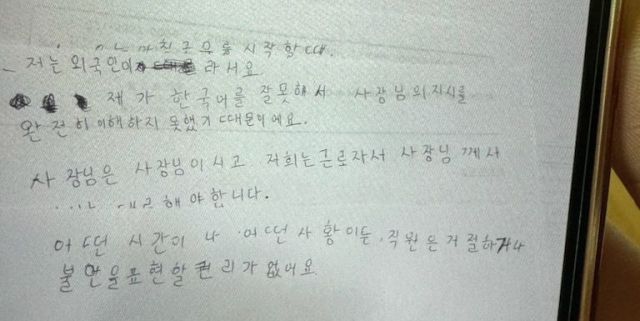 친구 우릉 시작할 때.
저는 외국인이 라서요
제가 한국어를 잘못해서 사장님의지시를
완전히 이해하지 못했기 때문이에요.
사장님은 사장님이시고 저희는근로자서 사장님께서
해야합니다.
어떤 시간이나 어떤사황이든, 직원은거절하거나
불만을표현할 권리가없어요